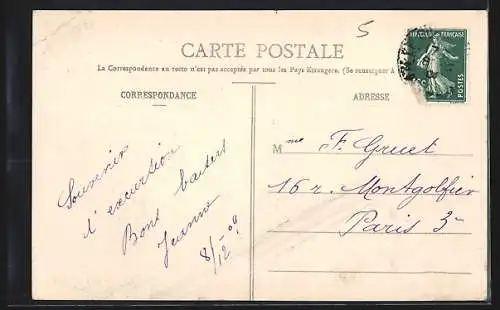 5
CARTE POSTALE
La Correspondance au recto n'est pas acceptée par tous les Pays Etrangers. (Se renseigner à
CORRESPONDANCE
ADRESSE
REPUBLIQUE FRANÇAISE
POSTES
Souvenir
d'excursion
Bons baisers
Jeanne
8/12 09
Mme F. Gruet
16 r. Montgolfier
Paris 3e